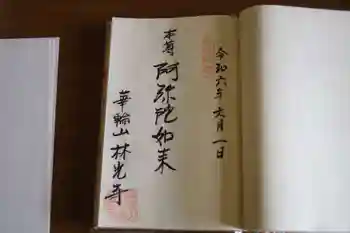 令和六年 六月一日
本尊 阿弥陀如来
華輪山 林光寺